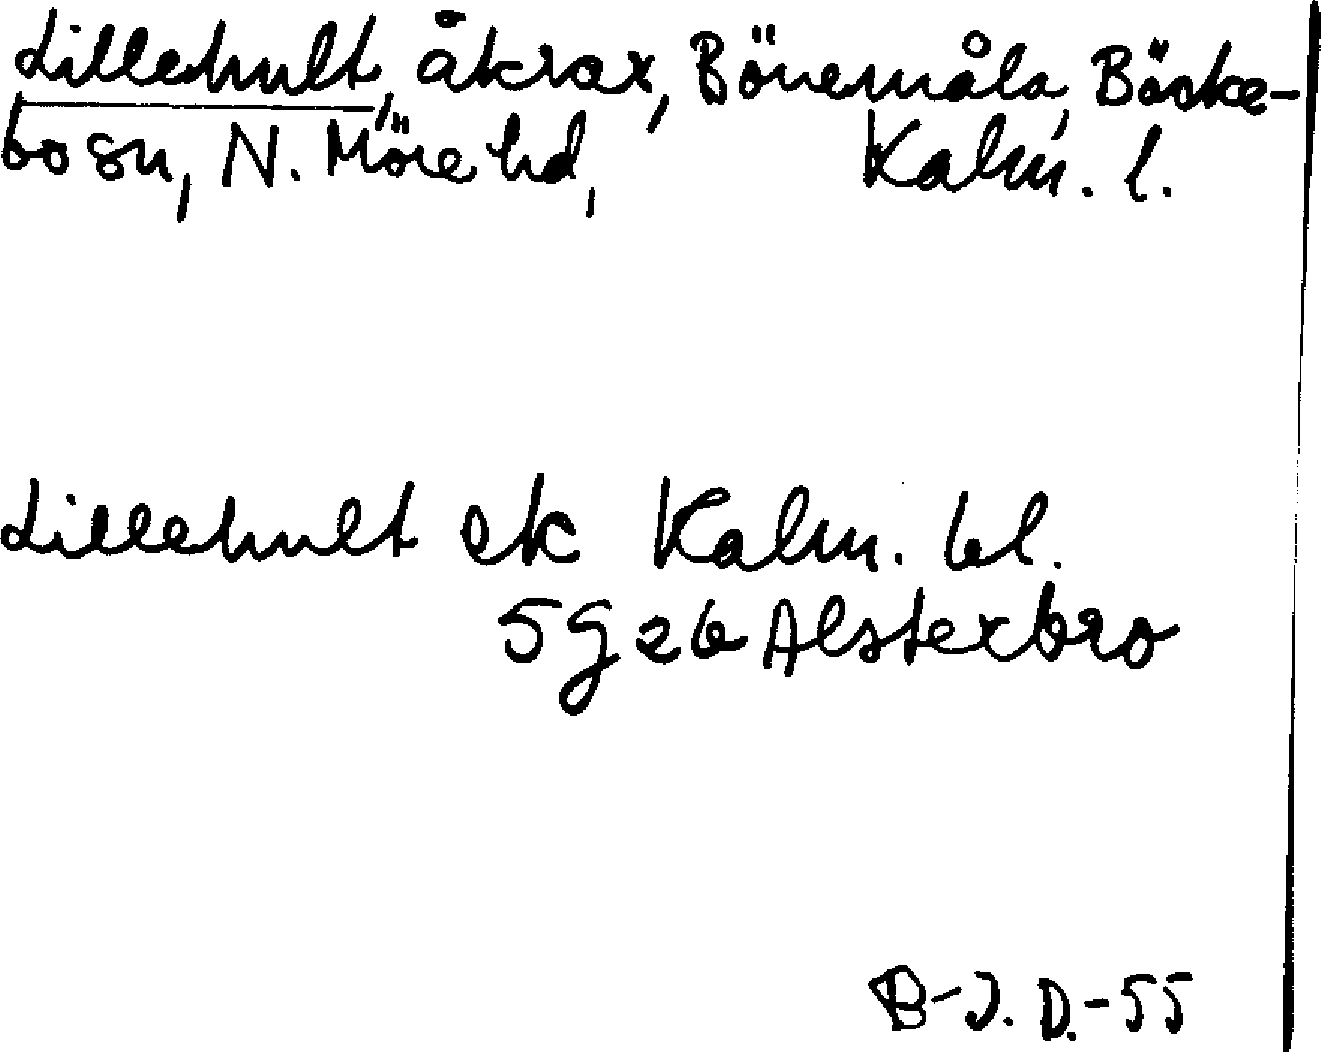 Lillehult, åkrar, Bönemåla, Bäcke-
bo sn, N. Möre hd, Kalm. l.
Lillehult ek Kalm. bl.
5 G 2b Alsterbro
B-J. D.-55